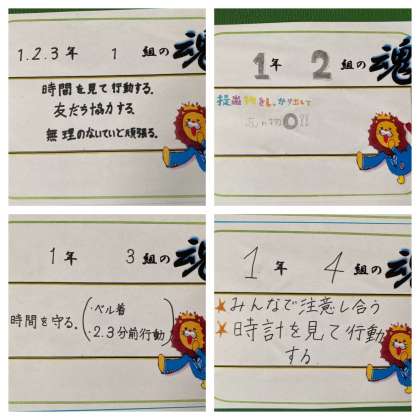 1.2.3年 1 組の魂
時間を見て行動する。
友だち協力する。
無理のないていど頑張る。
1年 2 組の魂
提出物をしっかり出して
忘れ物0!!
1年 3 組の魂
時間を守る。
・ベル着
・2.3分前行動
1年 4 組の魂
★みんなで注意し合う
★時計を見て行動
する